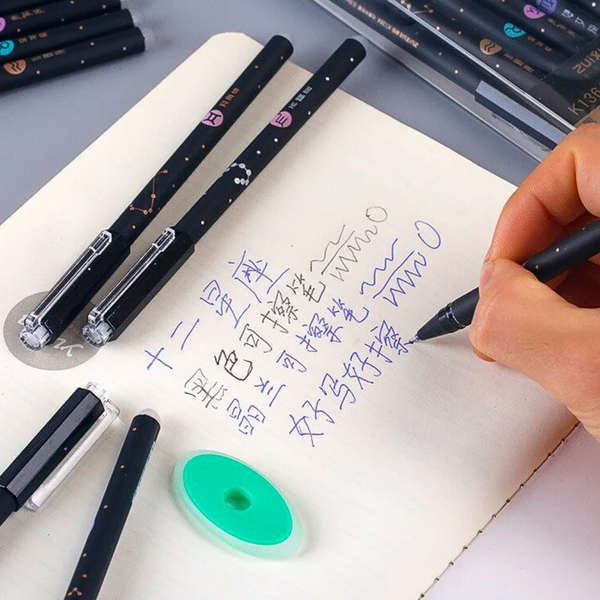 十二星座
黑色可擦笔
晶兰可擦笔
好写好擦
K136